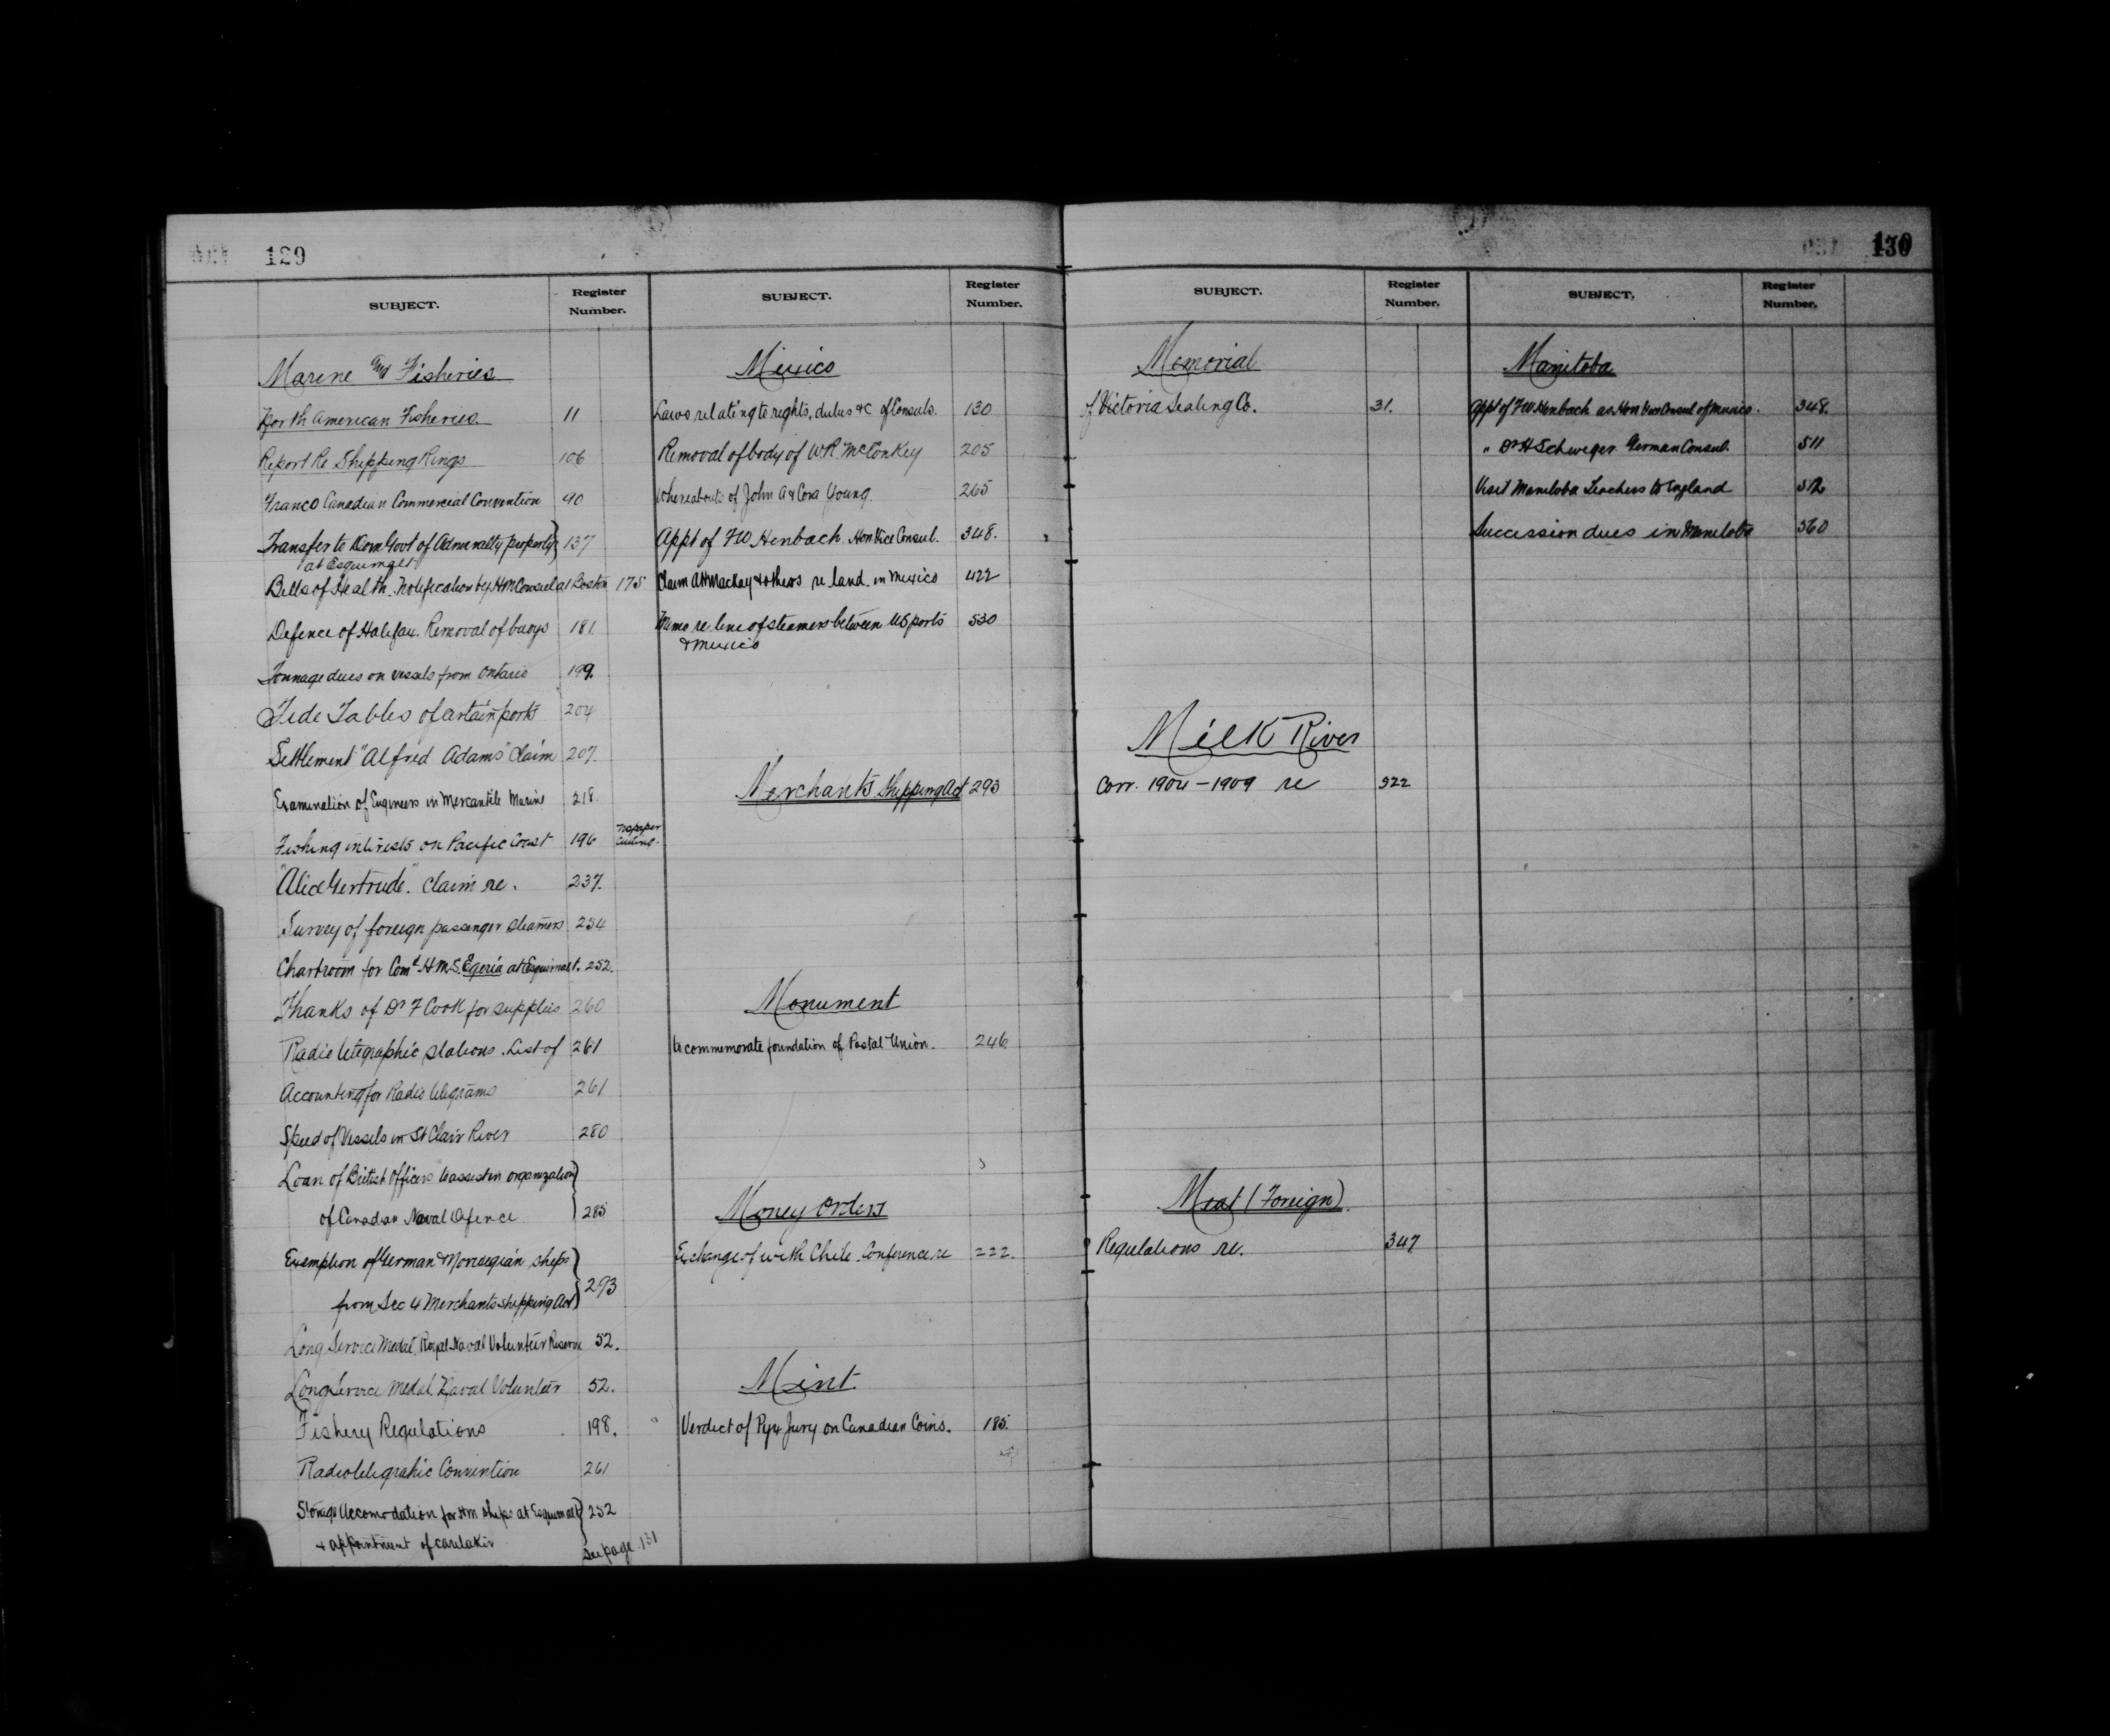 129
SUBJECT.
Register Number.
Marine and Fisheries
North American Fisheries. 11
Report Re Shipping Rings 106
Franco Canadian Commercial Convention 90
Transfer to Dom Govt of Admiralty property 137
at Esquimalt
Bills of Health. Notification by HM Consul at Boston 175
Defence of Halifax. Removal of buoys 181
Tonnage dues on vessels from Ontario 199.
Tide Tables of certain ports 204
Settlement "Alfred Adams" Claim 207.
Examination of Engineers in Mercantile Marine 218.
Fishing interests on Pacific Coast 196 cutting.
"Alice Gertrude". Claim re. 237.
Survey of foreign passenger steamers 254
Chartroom for Comd HMS. Egeria at Esquimalt. 252.
Thanks of Dr F Cook for supplies 260
Radio telegraphic stations. List of 261
Accounting for Radio telegrams 261
Speed of Vessels in St Clair River 280
Loan of British Officers to assist in organization
of Canadian Naval Defence 285
Exemption of German & Norwegian ships
from Sec 4 Merchants shipping Act 293
Long Service Medal. Royal Naval Volunteer Reserve 52.
Long Service Medal Naval Volunteer 52.
Fishery Regulations 198.
Radiotelegraphic Convention 261
Storage Accomodation for HM ships at Esquimalt 252
& appointment of caretaker
See page 131
SUBJECT.
Register Number.
Mexico
Laws relating to rights, duties &c of Consuls. 130
Removal of body of WR McConkey 205
Whereabouts of John A & Cora Young. 265
Appt of FW Henbach. Hon Vice Consul. 348.
Claim AH MacKay & others re land in Mexico 422
Memo re line of steamers between US ports 530
& Mexico
Merchants Shipping Act 293
Monument
to commemorate foundation of Postal Union. 246.
Money Orders
Exchange of with Chile. Conference re 222.
Mint.
Verdict of Pyx Jury on Canadian Coins. 185.
130
SUBJECT.
Register Number.
Memorial
of Victoria Sealing Co. 31.
Milk River
Corr. 1904-1909 re 322
Meat (Foreign).
Regulations re. 347
SUBJECT.
Register Number.
Manitoba
Appt of FW Henbach as Hon Vice Consul of Mexico. 348.
" Dr H Schweger German Consul. 511
Visit Manitoba Teachers to England 512
Succession dues in Manitoba 560